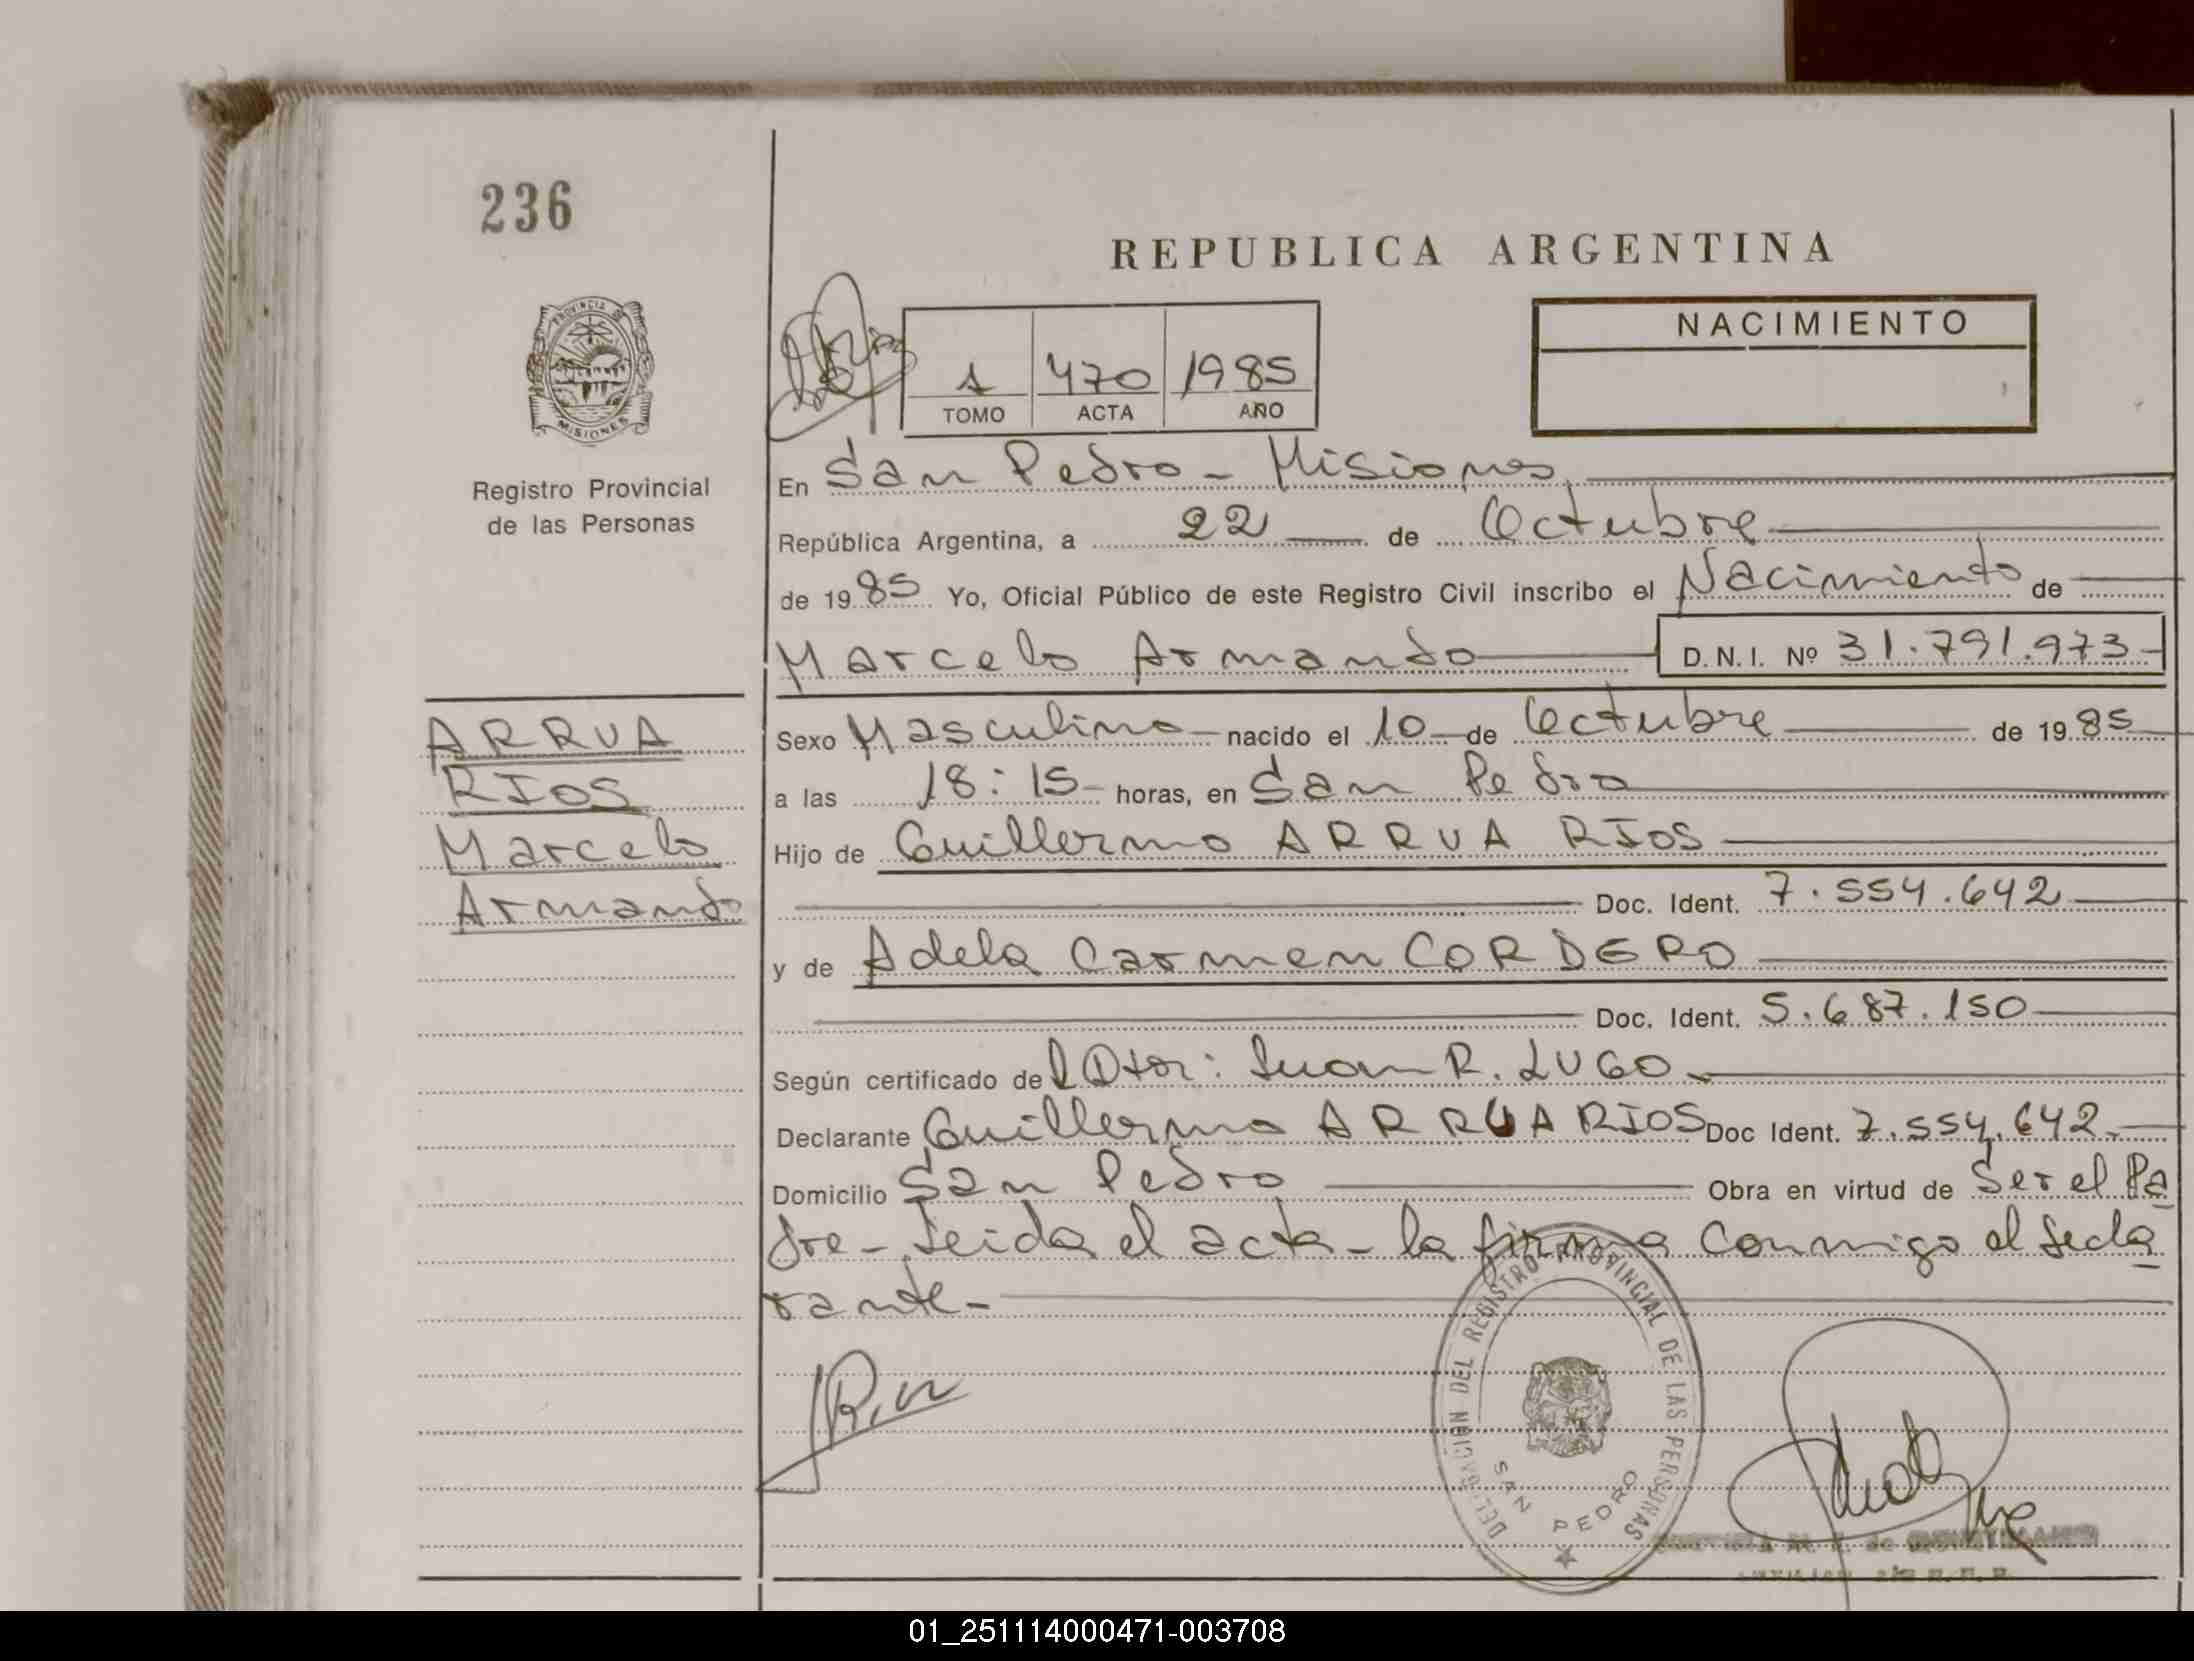 236
REPUBLICA ARGENTINA
NACIMIENTO
1 470 1985
TOMO ACTA AÑO
PROVINCIA DE MISIONES
Registro Provincial
de las Personas
En San Pedro - Misiones
República Argentina, a 22 de Octubre
de 1985 Yo, Oficial Público de este Registro Civil inscribo el Nacimiento de
Marcelo Armando D.N.I. Nº 31.791.973
ARRUA
RIOS
Marcelo
Armando
Sexo Masculino nacido el 10 de Octubre de 1985
a las 18:15 horas, en San Pedro
Hijo de Guillermo ARRUA RIOS
Doc. Ident. 7.554.642
y de Adela Carmen CORDERO
Doc. Ident. 5.687.150
Según certificado del Dtor: Juan R. LUGO
Declarante Guillermo ARRUA RIOS Doc Ident. 7.554.642
Domicilio San Pedro Obra en virtud de Ser el Pa
dre - Leida el acta - la firma conmigo el decla
rante -
DELEGACION DEL REGISTRO PROVINCIAL DE LAS PERSONAS
SAN PEDRO
01_251114000471-003708